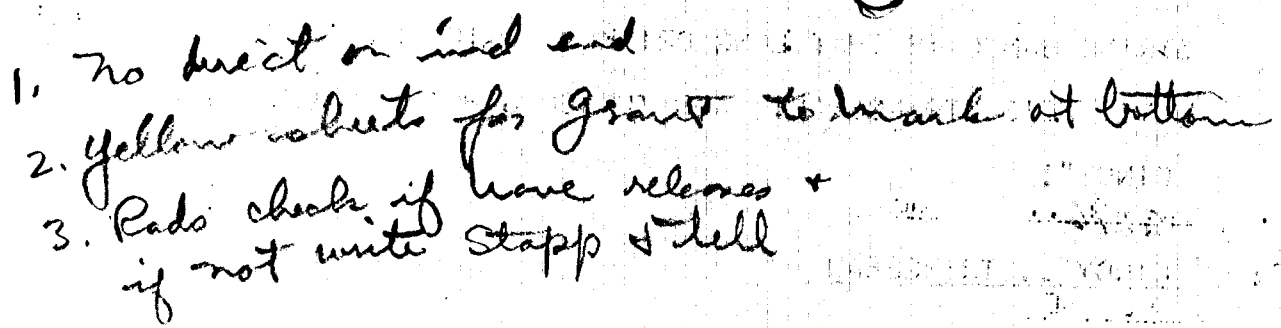 1. No direct on ind end
2. Yellow sheets for Grant to mark at bottom
3. Rads check if have releases +
if not write Stapp & tell